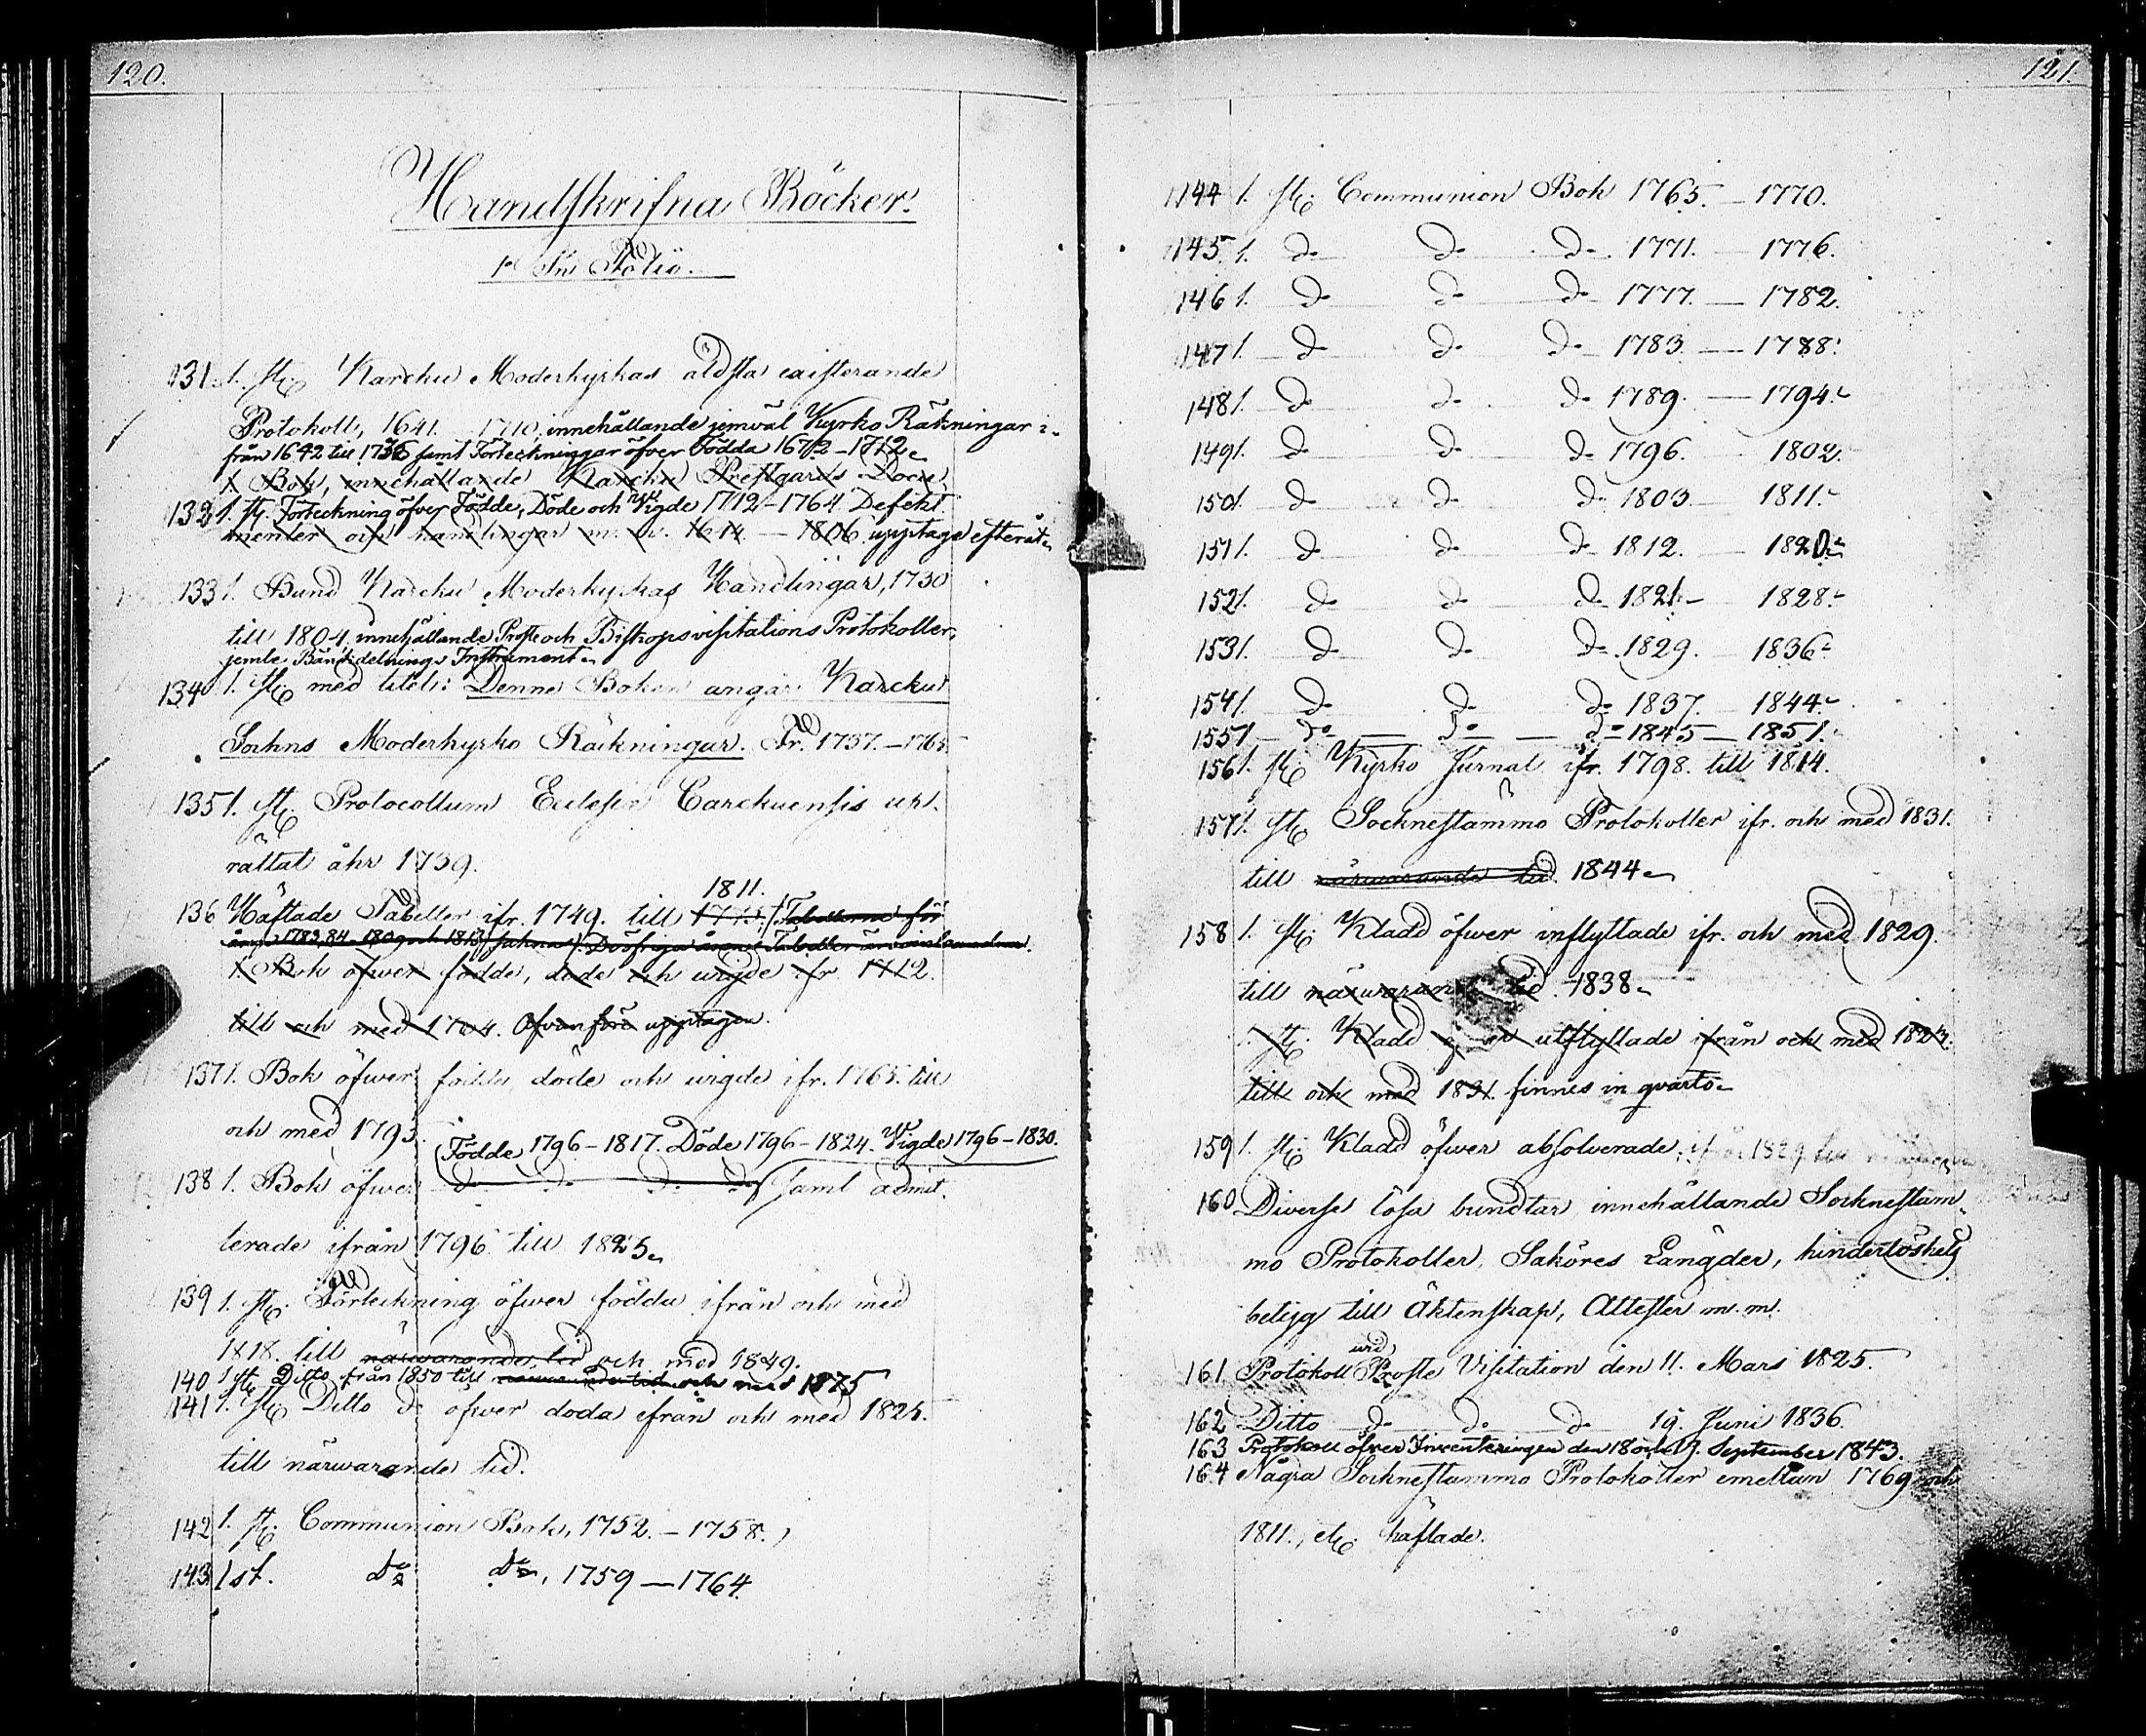 120.
Handskrifna Böcker.
1o In Folio.
131. 1. st. Karcku Moderkyrkas äldsta existerande
Protokoll, 1641. - 1710, innehållande jemväl Kyrko Räkningar i-
från 1642 till 1736 samt Förteckningar öfver Födda 1672-1712.
1. Bok, innehållande Karcku Prestgårds Docu-
132 1. st. Förteckning öfver Födde, Döde och Vigde 1712-1764. Defekt.
menter och handlingar m. m. 1614 - 1806. upptages efteråt.
133 1. Bund Karcku Moderkyrkas Handlingar, 1730
till 1804, innehållande Prosts och Biskopsvisitations Protokoller,
jemte Bänkdelnings Instrument.
134 1. st. med titel: Denne Boken angår Karcku
Sochns Moderkyrko Räkningar. Fr. 1737. - 1765.
135 1. st. Protocollum Ecclesiæ Carckuensis uh-
rättat åhr 1739.
1811.
136 Häftade Tabeller ifr. 1749. till 1775. / Tabellerna för
åren 1783, 84 - 1809 och 1813 saknas. De öfriga årens Tabeller äro
1 Bok öfwer födde, döde och wigde ifr. 1712.
till och med 1764. Ofvanföre upptagen.
137 1. Bok öfwer födde, döde och wigde ifr. 1765. till
och med 1793.
Födde 1796-1817. Döde 1796-1824. Vigde 1796-1830.
138 1. Bok öfwer do do do do samt admit-
terade ifrån 1796 till 1825.
139 1. st. Förteckning öfwer födda ifrån och med
1818. till närwarande tid och med 1849.
140 1 st. Ditto från 1850 till närwarande tid och med 1875
141 1. st. Ditto do öfwer döda ifrån och med 1825.
till närwarande tid.
142 1. st. Communion Bok, 1752. - 1758.
143 1 st. do do, 1759 - 1764.
121.
144 1. st. Communion Bok 1765. - 1770.
145. 1. do do do 1771. - 1776.
146 1. do do do 1777. - 1782.
147 1. do do do 1783. - 1788.
148 1. do do do 1789. - 1794.
149 1. do do do 1796. - 1802.
150 1. do do do 1803. - 1811.
151 1. do do do 1812. - 1820.
152 1. do do do 1821. - 1828.
153 1. do do do 1829. - 1836.
154 1. do do do 1837. - 1844.
155 1 do do do 1845 - 1851.
156 1. st. Kyrko Jurnal ifr. 1798. till 1814.
157 1. st. Socknestämmo Protokoller ifr. och med 1831.
till närwarande tid. 1844.
158 1. st. Kladd öfwer inflyttade ifr. och med 1829.
till närwarande tid. 1838.
1. st. Kladd öfwer utflyttade ifrån och med
till och med 1831. finnes in qvarto.
159 1. st. Kladd öfwer absolverade, ifrån 1829 till
160 Diverse lösa bundtar innehållande Sockne­stäm-
mo Protokoller, Saköres Längder, hinderlöshets
betyg till Äktenskap, Attester m. m.
wid
161 Protokoll Prosts Visitation den 11. Mars 1825.
162 Ditto do do do 19. Juni 1836.
163 Protokoll öfver Inventeringen den 18 och 19. September 1843.
164 Några Sockne­stämmo Protokoller emellan 1769 och
1811., etc. häftade.